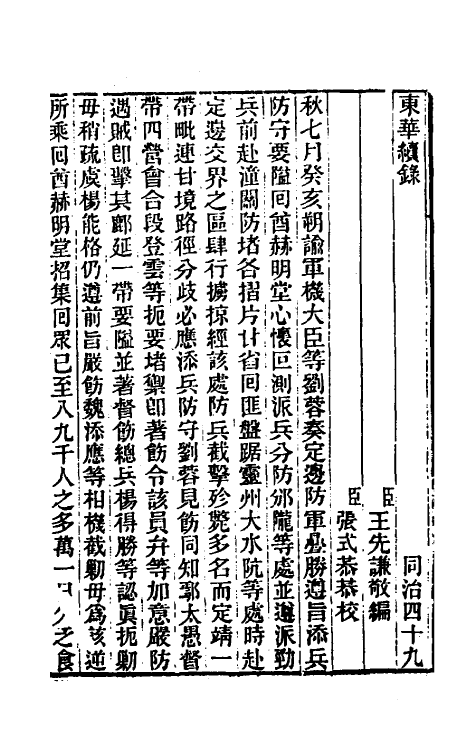 東華續錄　同治四十九
臣王先謙敬編
臣張式恭恭校
秋七月癸亥朔諭軍機大臣等劉蓉奏定邊防軍疊勝遵旨添兵
防守要隘囘酋赫明堂心懷叵測派兵分防邠隴等處並遵派勁
兵前赴潼關防堵各摺片甘省囘匪盤踞靈州大水阬等處時赴
定邊交界之區肆行擄掠經該處防兵截擊殄斃多名而定靖一
帶毗連甘境路徑分歧必應添兵防守劉蓉見飭同知鄢太愚督
帶四營會合段登雲等扼要堵禦卽著飭令該員弁等加意嚴防
遇賊卽擊其鄜延一帶要隘並著督飭總兵楊得勝等認眞扼勦
毋稍疏虞楊能格仍遵前旨嚴飭魏添應等相機截勦毋爲該逆
所乘囘酋赫明堂招集囘眾已至八九千人之多萬一 之食